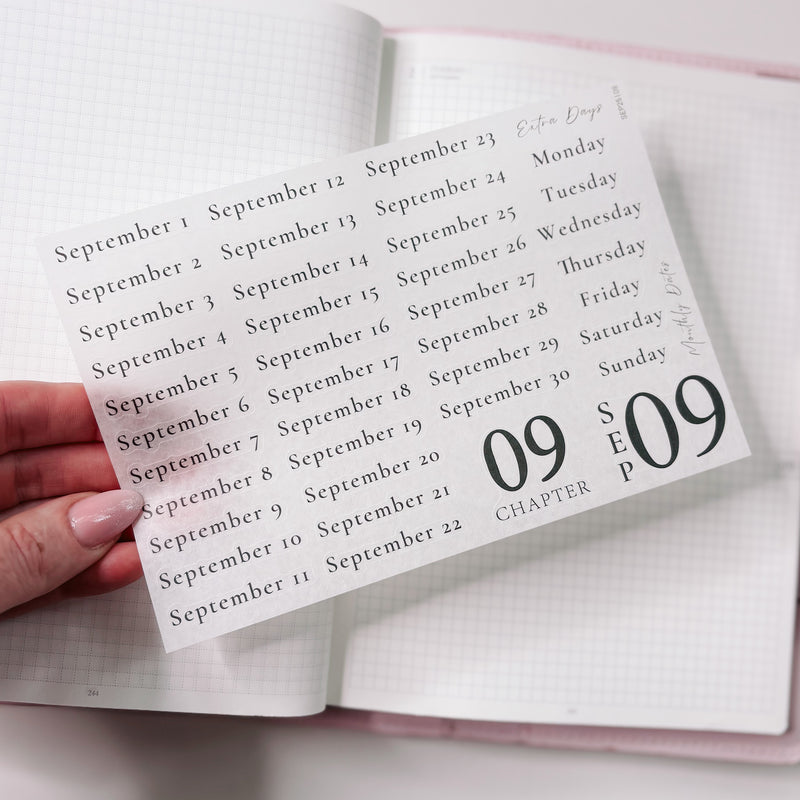 September 1
September 2
September 3
September 4
September 5
September 6
September 7
September 8
September 9
September 10
September 11
September 12
September 13
September 14
September 15
September 16
September 17
September 18
September 19
September 20
September 21
September 22
September 23
September 24
September 25
September 26
September 27
September 28
September 29
September 30
09
CHAPTER
Extra Days
Monday
Tuesday
Wednesday
Thursday
Friday
Saturday
Sunday
Monthly Dates
SEP
09
244